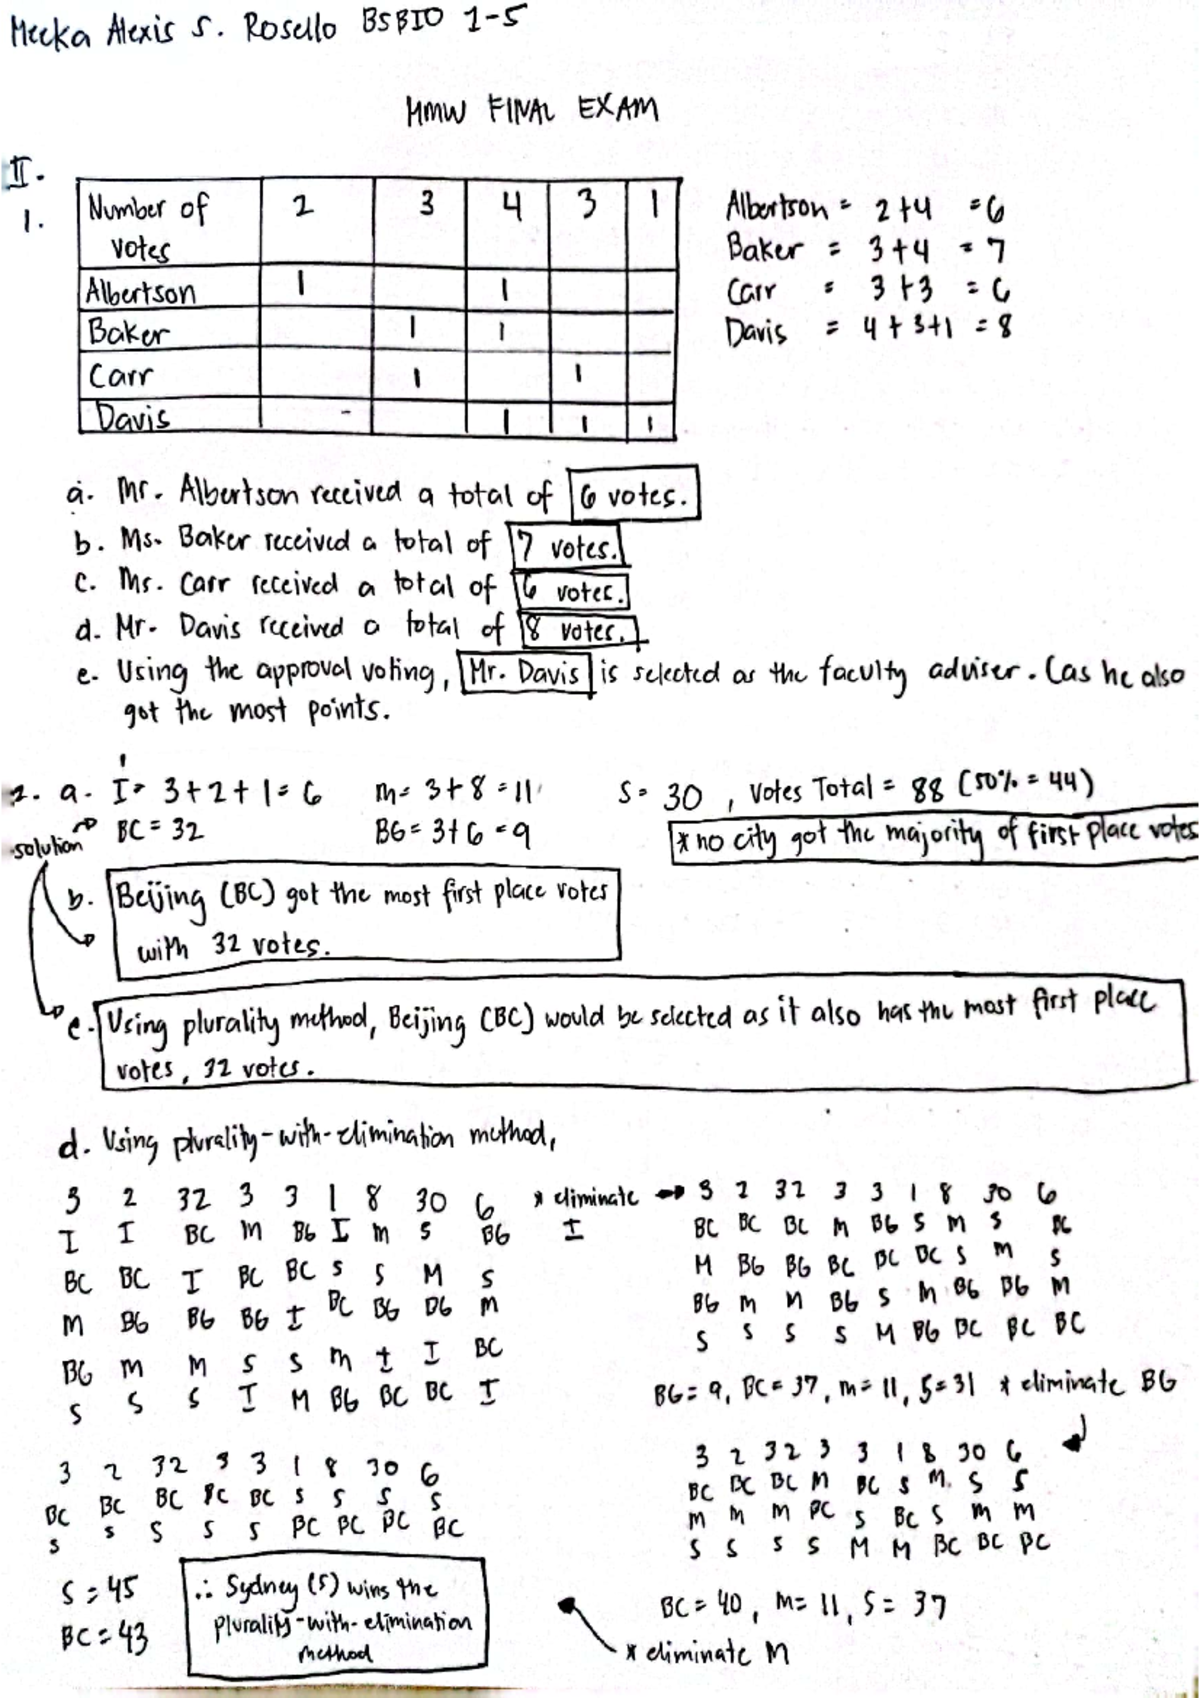 Mecka Alexis S. Rosello BSBIO 1-5
MMW FINAL EXAM
II.
1.
Number of votes 2 3 4 3 1
Albertson 1 1
Baker 1 1
Carr 1 1
Davis - 1 1 1
Albertson = 2+4 = 6
Baker = 3+4 = 7
Carr = 3+3 = 6
Davis = 4+3+1 = 8
a. Mr. Albertson received a total of 6 votes.
b. Ms. Baker received a total of 7 votes.
c. Ms. Carr received a total of 6 votes.
d. Mr. Davis received a total of 8 votes.
e. Using the approval voting, Mr. Davis is selected as the faculty adviser. (as he also
got the most points.
2. a. I = 3+2+1 = 6 m = 3+8 = 11 S = 30, Votes Total = 88 (50% = 44)
solution BC = 32 BG = 3+6 = 9 * no city got the majority of first place votes
b. Beijing (BC) got the most first place votes
with 32 votes.
c. Using plurality method, Beijing (BC) would be selected as it also has the most first place
votes, 32 votes.
d. Using plurality-with-elimination method,
3 2 32 3 3 1 8 30 6 * eliminate
I I BC M BG I m S BG I
BC BC I BC BC S S M S
M BG BG BG I BC BG BG M
BG m M S S m I I BC
S S S I M BG BC BC I
3 2 32 3 3 1 8 30 6
BC BC BC M BG S M S BG
M BG BG BC BC BC S M S
BG m M BG S M BG BG M
S S S S M BG BC BC BC
BG = 9, BC = 37, m = 11, S = 31 * eliminate BG
3 2 32 3 3 1 8 30 6
BC BC BC M BC S M. S S
m m m BC S BC S m m
S S S S M M BC BC BC
BC = 40, m = 11, S = 37
* eliminate M
3 2 32 3 3 1 8 30 6
BC BC BC BC BC S S S S
S S S S S BC BC BC BC
S = 45
BC = 43
∴ Sydney (S) wins the
plurality-with-elimination
method